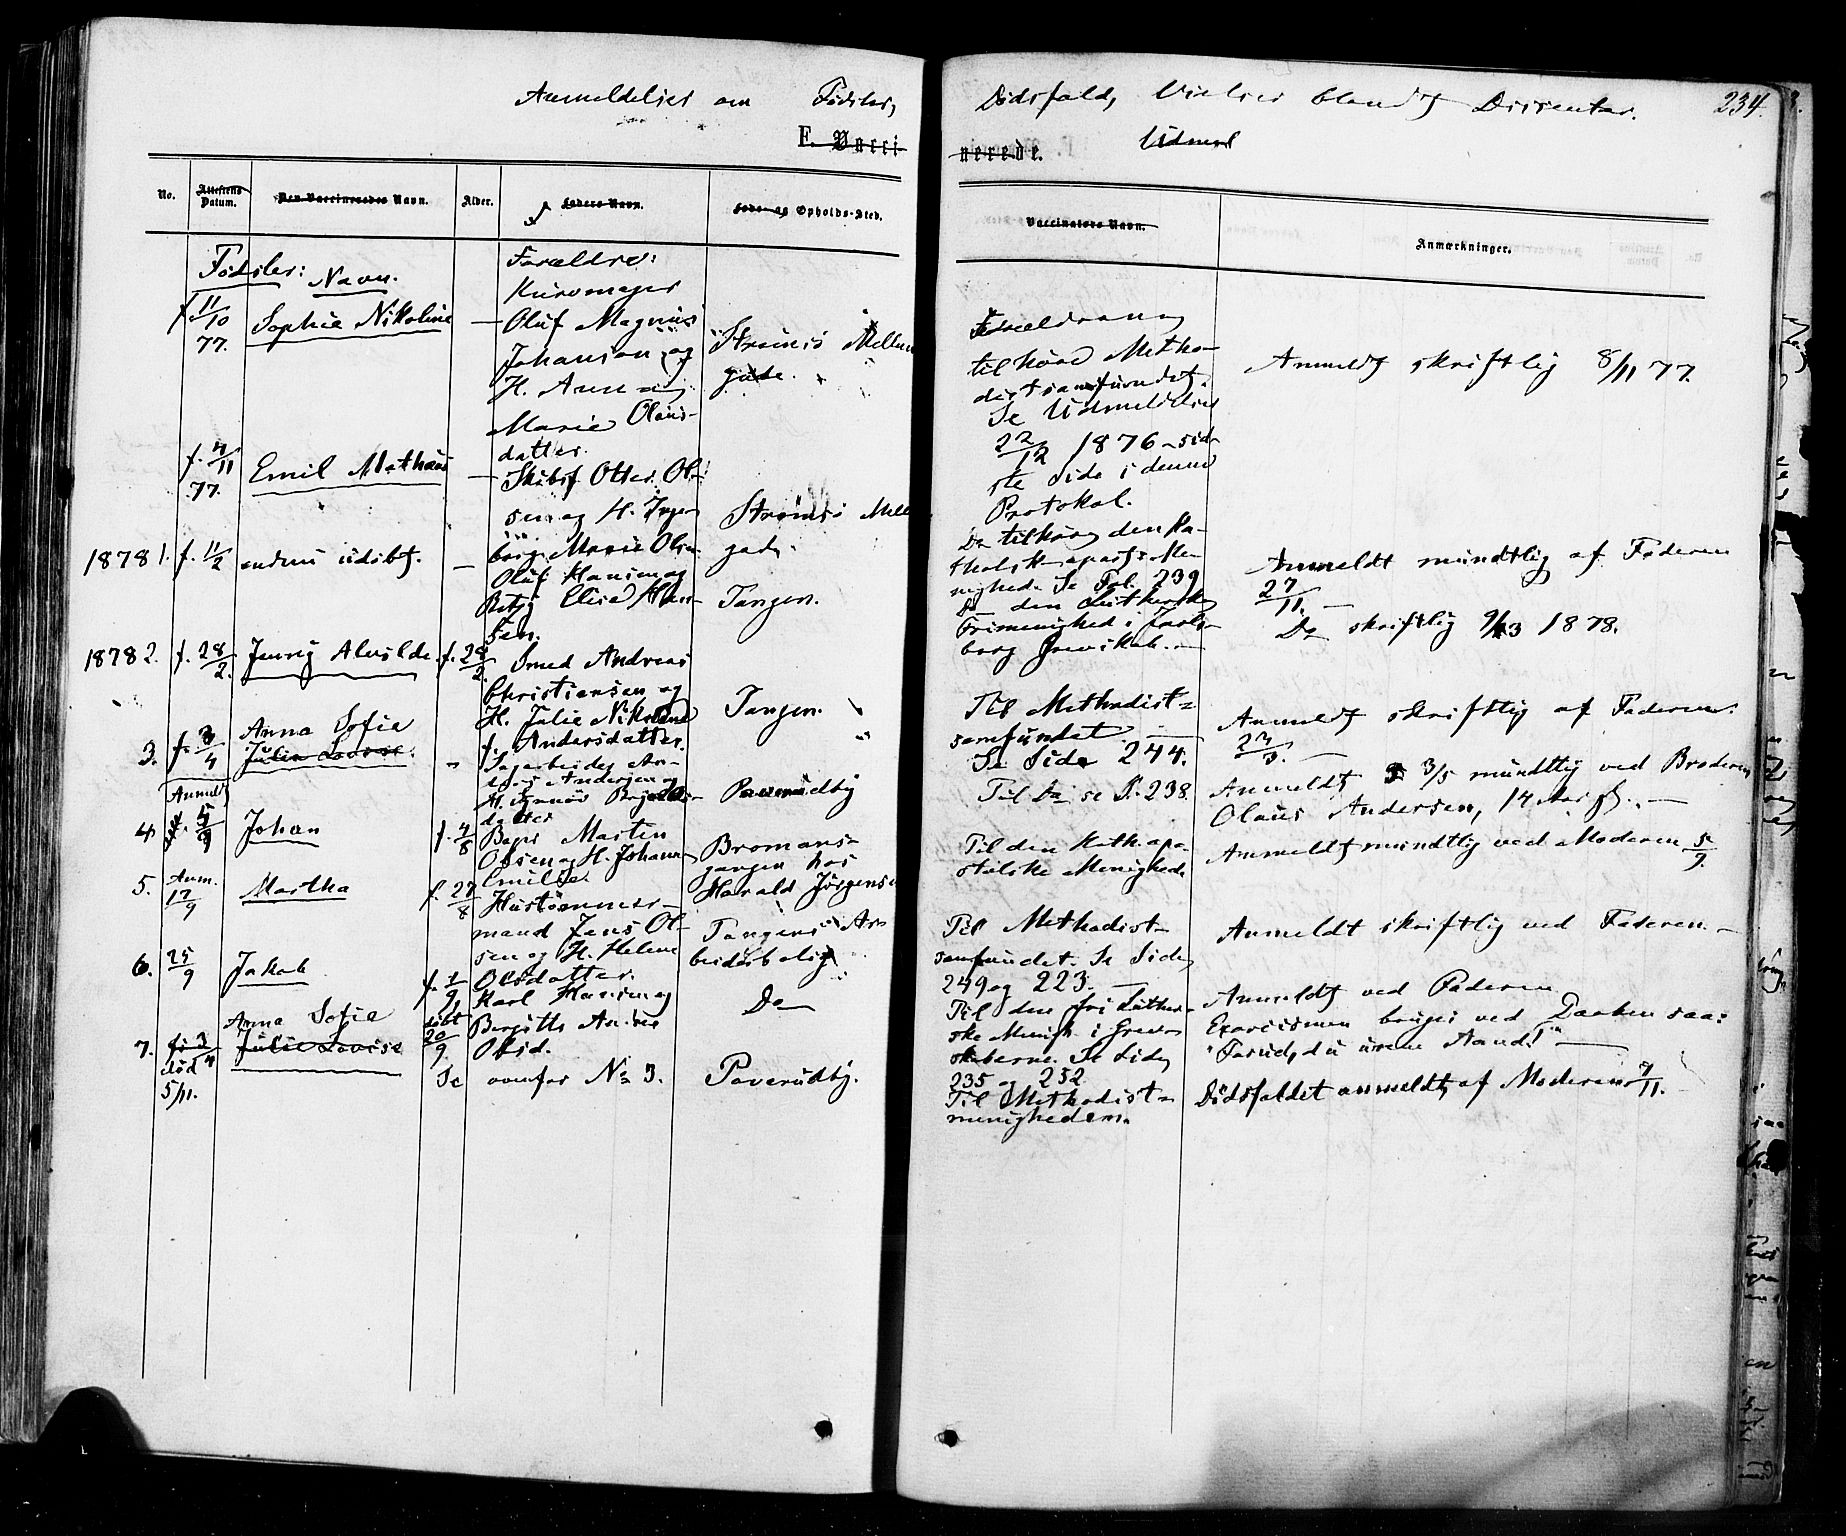 Anmeldelser om Fødsler,
Dødsfald, Vielser blandt Dissenter.
234.
F. Vacci-
nerede.
Udmel
No.
Attestens Datum.
Den Vaccineredes Navn.
Alder.
Faders Navn.
Føde- og Opholds-Sted.
Vaccinators Navn.
Anmærkninger.
Fødsler: Navn.
Forældre:
f. 11/10 77.
Sophie Nikoline
—
Oluf Magnus
Johansen og
H. Anne
Marie Olaus-
datter.
Strømsø Mellem
gade.
Forældrene
tilhøre Metho-
distsamfundet.
Se Udmeldelser
22/12 1876 - sid-
ste Side i denne
Protokol.
Anmeldt skriftlig 8/11 77.
f. 4/11 77.
Emil Mathæus
—
Skibsf Otter Ol-
sen og H. Inge-
borg Marie Olsen
Strømsø Mell
gade.
De tilhøre den Ka-
tholsk apost. Me-
nighed. Se Fol. 239
Anmeldt mundtlig af Faderen
27/11. —
1878 1. f. 11/2
endnu udøbt.
—
Oluf Hansen og
Betzy Elise Han-
sen.
Tangen.
Do den Lutherske
Frimenighed i Jarls-
berg Grevskab. —
Do skriftlig 9/3 1878.
1878 2. f. 28/2.
Jenny Alvilde.
f. 28/2.
Smed Andreas
Christiansen og
H. Julie Nikoline
f. Andersdatter.
Tangen.
Til Methodist-
samfundet. —
Se Side 244.
Anmeldt skriftlig af Faderen.
23/3. —
3. f. 3/4
Anna Sofie
Julie Lovise.
"
Sagarbeider An-
ders Andersen og
datter
Paverudby
Til Do se S. 238.
Anmeldt 3/5 mundtlig ved Broderen
Olaus Andersen, 14 Aar gl. —
Anmeldt
4. 5/9
Johan
f. 4/8
Bager Martin
Olsen og H. Johanne
Emilie.
Bromans-
gangen hos
Harald Jørgensen
Til den Kath. apo-
stolske Menighed.
Anmeldt mundtlig ved Moderen 5/9.
5. Anm. 17/9
Martha
f. 27/8
Hustømmer-
mand Jens Ol-
sen og H. Helene
Olsdatter.
Tangens Ar-
beiderbolig.
Til Methodist-
samfundet. Se Side
249 og 223. —
Anmeldt skriftlig ved Faderen. —
6. 25/9
Jakob
f. 1/9,
døbt 20/9
Karl Hansen og
Bergitte Andrea
Olsd.
Do
Til den fri Luther-
ske Menigh. i Grev-
skaberne. Se Side
235 og 252
Anmeldt ved Faderen
Exorcismen bruges ved Daaben saa:
"Far ud, du urene Aand!" —
7. f. 3/4
død
5/11.
Anna Sofie
Julie Lovise
Se ovenfor No 3.
Paverudby.
Til Methodist-
menigheden.
Dødsfaldet anmeldt af Moderen 7/11.